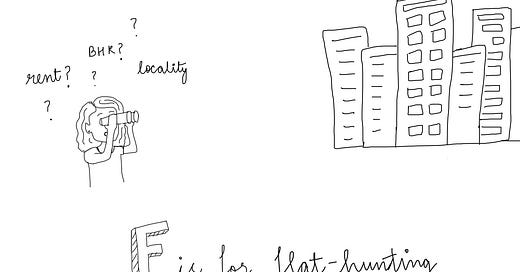 ?
BHK?
rent? ? locality
?
F is for flat-hunting